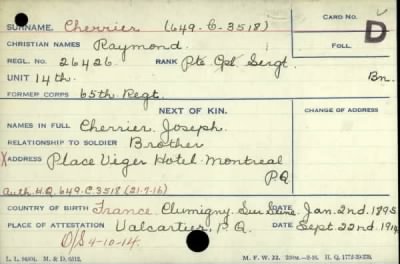 SURNAME. Cherrier (649-C-3518)
CARD NO.
CHRISTIAN NAMES Raymond.
D
REGL. NO. 26426. RANK Pte Cpl Sergt.
FOLL.
UNIT 14th. Bn.
FORMER CORPS 65th Regt.
NEXT OF KIN.
CHANGE OF ADDRESS
NAMES IN FULL Cherrier, Joseph.
RELATIONSHIP TO SOLDIER Brother
X ADDRESS Place Viger Hotel Montreal
P.Q
Auth. H.Q. 649-C.3518 (21.9.16)
COUNTRY OF BIRTH France. DATE Jan. 2nd. 1895
PLACE OF ATTESTATION Valcartier, P.Q. DATE Sept. 22nd. 1914
O/S 4-10-14.
M. F. W. 22.